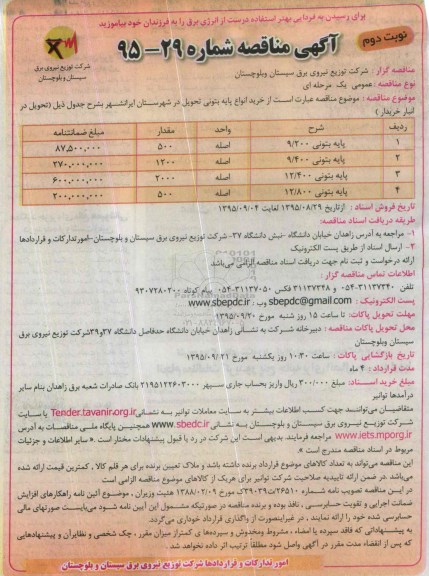 برای رسیدن به فردایی بهتر استفاده درست از انرژی برق را به فرزندان خود بیاموزید
نوبت دوم
آگهی مناقصه شماره ۲۹-۹۵
شرکت توزیع نیروی برق
سیستان و بلوچستان
مناقصه گزار : شرکت توزیع نیروی برق سیستان وبلوچستان
نوع مناقصه : عمومی یک مرحله ای
موضوع مناقصه : موضوع مناقصه عبارت است از خرید انواع پایه بتونی تحویل در شهرستان ایرانشهر بشرح جدول ذیل (تحویل در
انبار خریدار)
ردیف شرح واحد مقدار مبلغ ضمانتنامه
۱ پایه بتونی ۹/۲۰۰ اصله ۵۰۰ ۸۷,۵۰۰,۰۰۰
۲ پایه بتونی ۹/۴۰۰ اصله ۱۲۰۰ ۲۷۰,۰۰۰,۰۰۰
۳ پایه بتونی ۱۲/۴۰۰ اصله ۲۰۰۰ ۶۰۰,۰۰۰,۰۰۰
۴ پایه بتونی ۱۲/۸۰۰ اصله ۵۰۰ ۲۰۰,۰۰۰,۰۰۰
تاریخ فروش اسناد : ازتاریخ ۱۳۹۵/۰۸/۲۹ لغایت ۱۳۹۵/۰۹/۰۴
طریقه دریافت اسناد مناقصه:
۱- مراجعه به آدرس زاهدان خیابان دانشگاه -نبش دانشگاه ۳۷- شرکت توزیع نیروی برق سیستان و بلوچستان-امورتدارکات و قراردادها
۲- ارسال اسناد از طریق پست الکترونیک
ارائه درخواست و ثبت نام جهت دریافت اسناد مناقصه الزامی می‌باشد
اطلاعات تماس مناقصه گزار :
تلفن ۳۱۱۳۷۳۴۰-۰۵۴ و ۳۱۱۳۷۳۴۸ فکس ۳۱۱۳۷۰۵۰-۰۵۴ پیام کوتاه ۹۳۰۷۲۸۰۲۰
پست الکترونیک : sbepdc@gmail.com وب : www.sbepdc.ir
مهلت تحویل پاکات : تا ساعت ۱۵ روز شنبه مورخ ۱۳۹۵/۰۹/۲۰
محل تحویل پاکات مناقصه : دبیرخانه شرکت به نشانی زاهدان خیابان دانشگاه حدفاصل دانشگاه ۳۷و۳۹شرکت توزیع نیروی برق
سیستان وبلوچستان
تاریخ بازگشایی پاکات : ساعت ۱۰:۳۰ روز یکشنبه مورخ ۱۳۹۵/۰۹/۲۱
مدت قرارداد : ۴ ماه
مبلغ خرید اسناد: مبلغ ۳۰۰/۰۰۰ ریال واریز بحساب جاری سپهر ۳۱۹۵۱۲۲۶۰۳۰۰۰ بانک صادرات شعبه برق زاهدان بنام سایر
درآمدها توانیر
متقاضیان می‌توانند جهت کسب اطلاعات بیشتر به سایت معاملات توانیر به نشانی Tender.tavanir.org.ir یا سایت
شرکت توزیع نیروی برق سیستان و بلوچستان به نشانی www.sbedc.ir همچنین پایگاه ملی مناقصات به آدرس
www.iets.mporg.ir مراجعه فرمایند. بدیهی است این شرکت در رد یا قبول پیشنهادات مختار است .« سایر اطلاعات و جزئیات
مربوط در اسناد مناقصه مندرج است ».
این مناقصه می‌تواند به تعداد کالاهای موضوع قرارداد برنده داشته باشد و ملاک تعیین برنده برای هر قلم کالا ، کمترین قیمت ارائه شده
می‌باشد .در ضمن ارائه تاییدیه صلاحیت شرکت توانیر برای هریک از کالاهای موضوع مناقصه الزامی است
در این مناقصه تصویب نامه شماره ۲۶۵۱۰/ت۳۹۰۳۹ک مورخ ۱۳۸۸/۰۲/۰۹ هئیت وزیران ، موضوع آئین نامه راهکارهای افزایش
ضمانت اجرایی و تقویت حسابرسی ، نافذ بوده و برنده مناقصه در صورتیکه مشمول این آیین نامه شود می‌بایست صورتهای مالی
حسابرسی شده خود را ارائه نمایند ، در غیراینصورت از واگذاری قرارداد خودداری می‌گردد.
به پیشنهاداتی که فاقد سپرده یا امضاء ، مشروط ومخدوش و سپرده‌های کمتراز میزان مقرر ، چک شخصی و نظایرآن و پیشنهادهایی
که پس از انقضاء مدت مقرر در آگهی واصل شود مطلقاً ترتیب اثر داده نخواهد شد.
امور تدارکات و قراردادها شرکت توزیع نیروی برق سیستان و بلوچستان